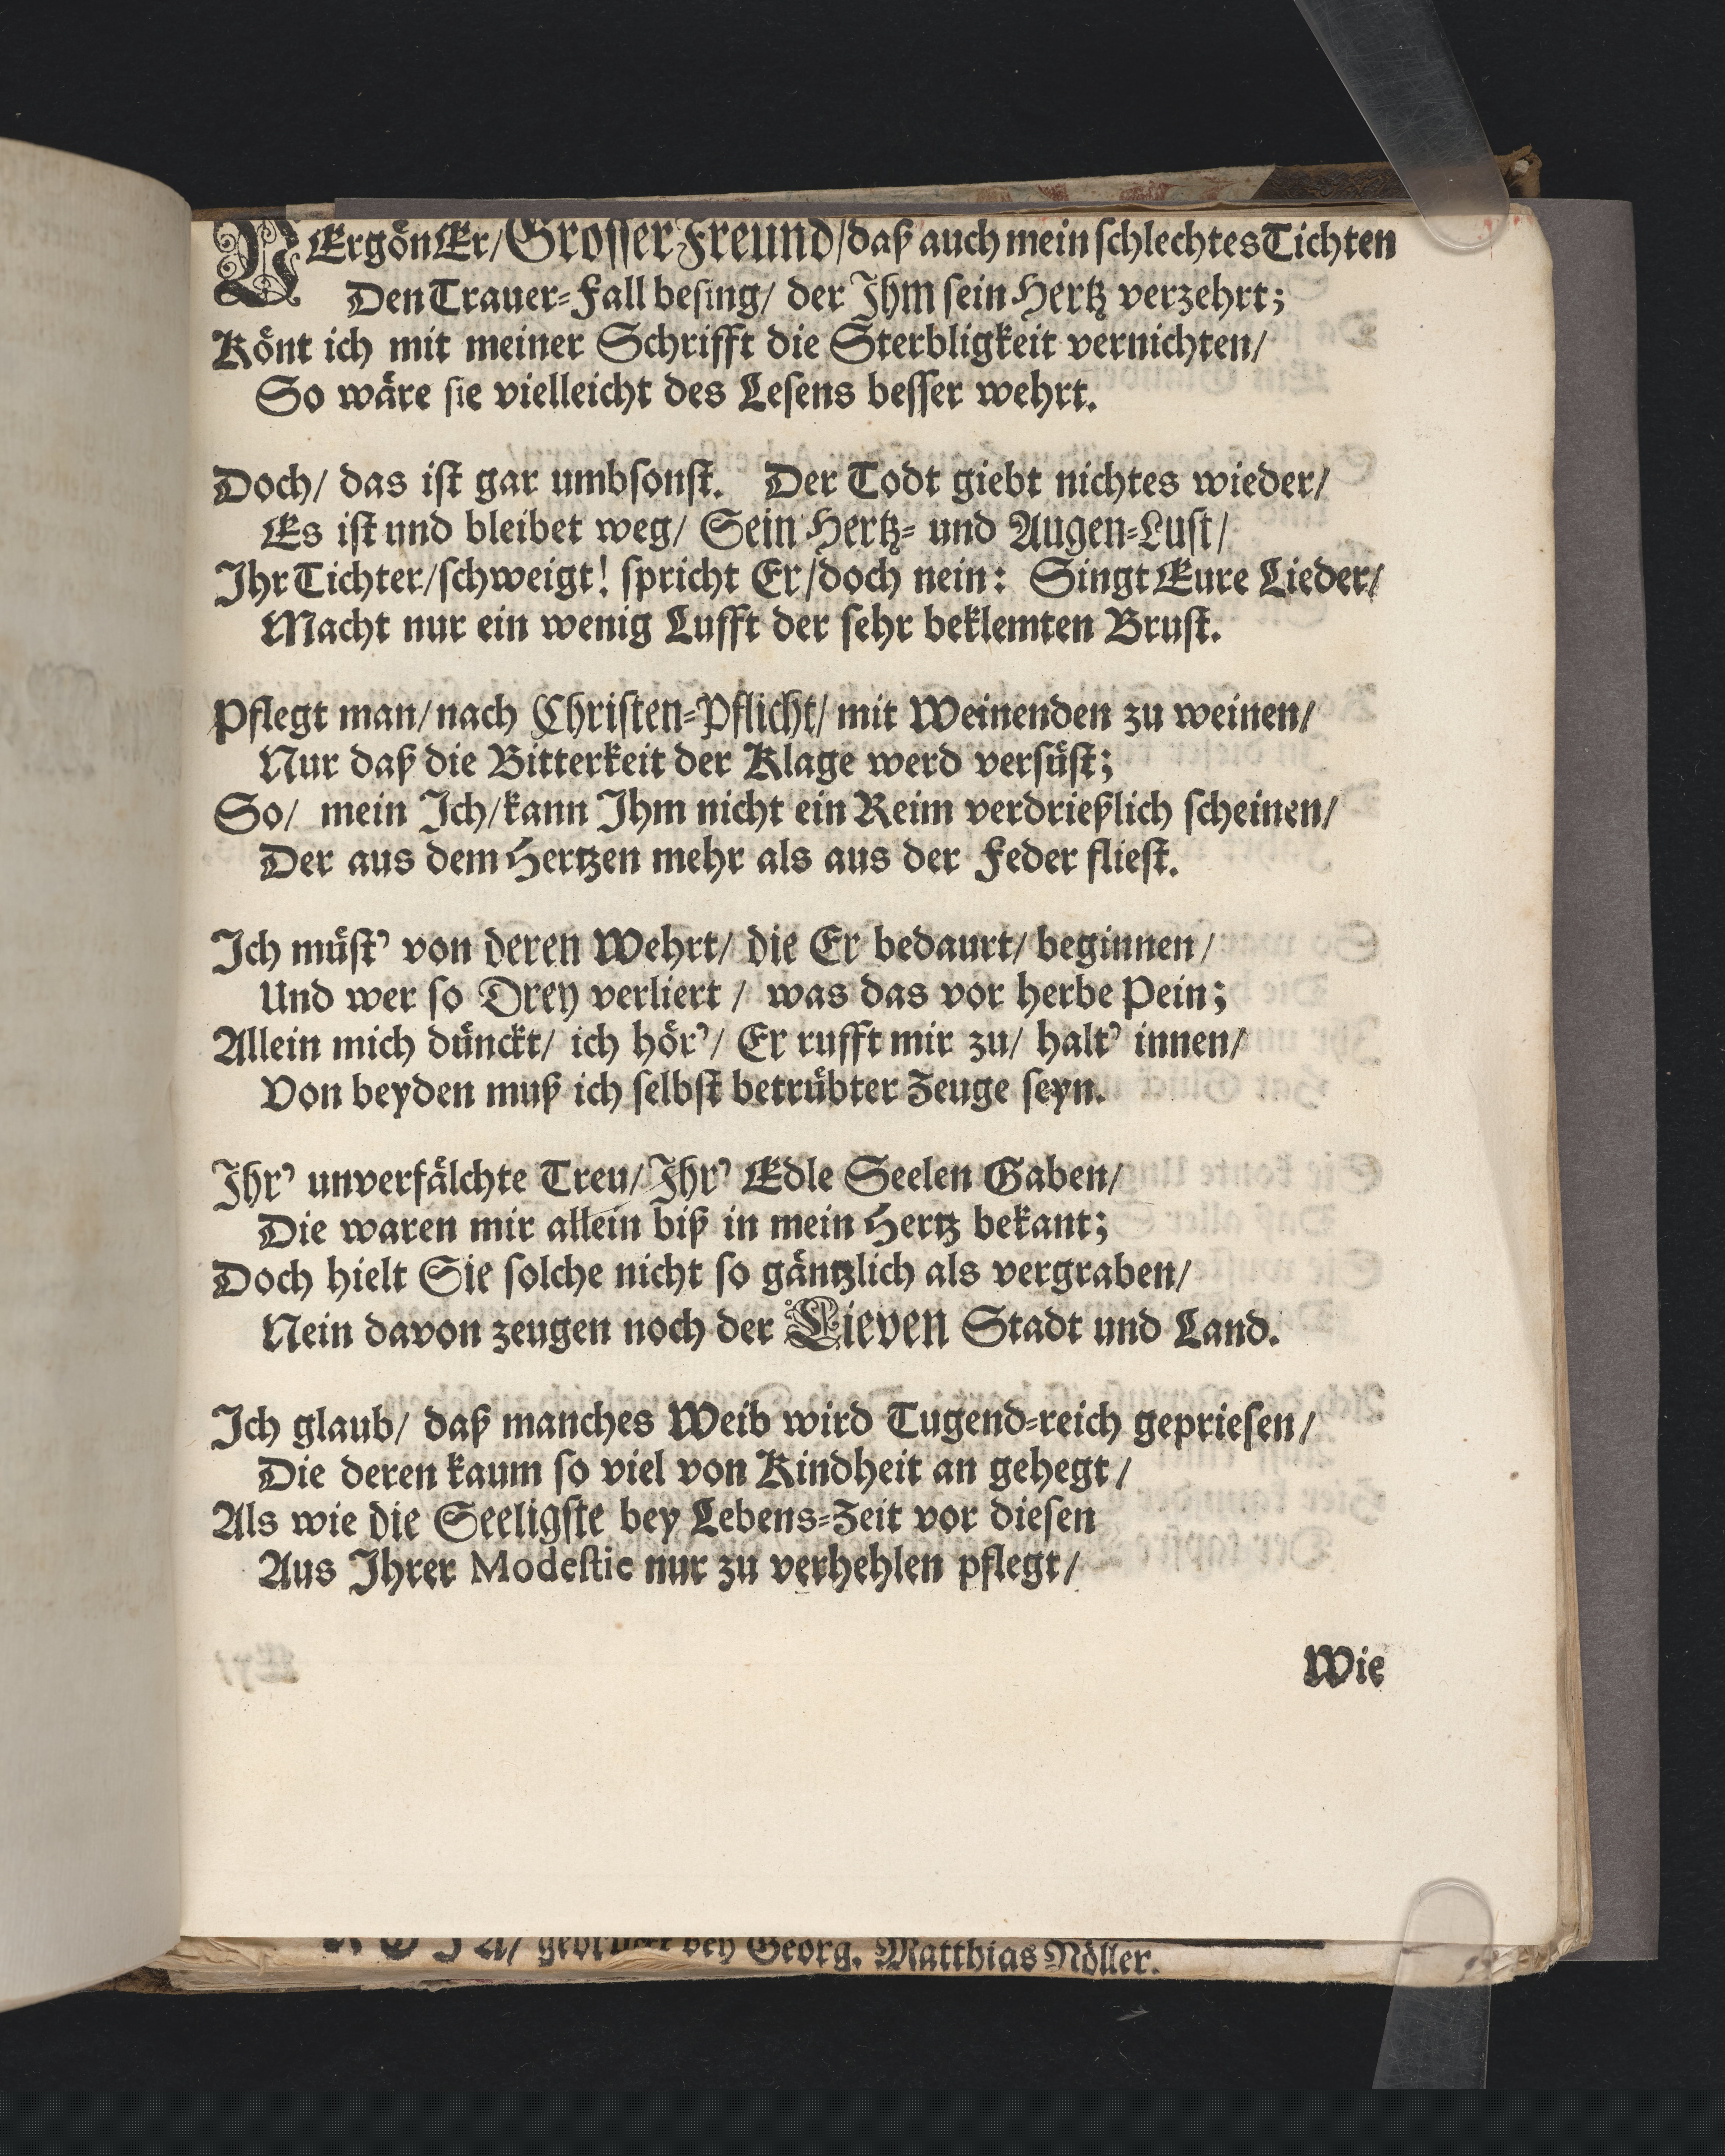 VErgön Er/ Grosser Freund/ daß auch mein schlechtes Tichten
Den Trauer-Fall besing/ der Ihm sein Hertz verzehrt;
Könt ich mit meiner Schrifft die Sterbligkeit vernichten/
So wäre sie vielleicht des Lesens besser wehrt.
Doch/ das ist gar umbsonst. Der Todt giebt nichtes wieder/
Es ist und bleibet weg/ Sein Hertz- und Augen-Lust/
Ihr Tichter/ schweigt! spricht Er/ doch nein: Singt Eure Lieder/
Macht nur ein wenig Lufft der sehr beklemten Brust.
Pflegt man/ nach Christen-Pflicht/ mit Weinenden zu weinen/
Nur daß die Bitterkeit der Klage werd versüst;
So/ mein Ich/ kann Ihm nicht ein Reim verdrießlich scheinen/
Der aus dem Hertzen mehr als aus der Feder fliest.
Ich müst' von deren Wehrt/ die Er bedaurt/ beginnen/
Und wer so Drey verliert/ was das vor herbe Pein;
Allein mich dünckt/ ich hör'/ Er rufft mir zu/ halt' innen/
Von beyden muß ich selbst betrübter Zeuge seyn.
Ihr' unverfälchte Treu/ Ihr' Edle Seelen Gaben/
Die waren mir allein biß in mein Hertz bekant;
Doch hielt Sie solche nicht so gäntzlich als vergraben/
Nein davon zeugen noch der Lieven Stadt und Land.
Ich glaub/ daß manches Weib wird Tugend-reich gepriesen/
Die deren kaum so viel von Kindheit an gehegt/
Als wie die Seeligste bey Lebens-Zeit vor diesen
Aus Ihrer Modestie nur zu verhehlen pflegt/
Wie
gedruckt bey Georg. Matthias Nöller.